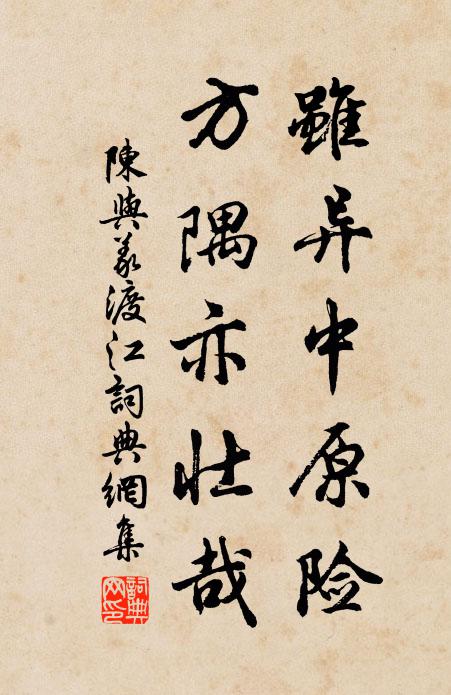 雖异中原险
方隅亦壮哉
陳與義渡江詞典網集
詞典网印